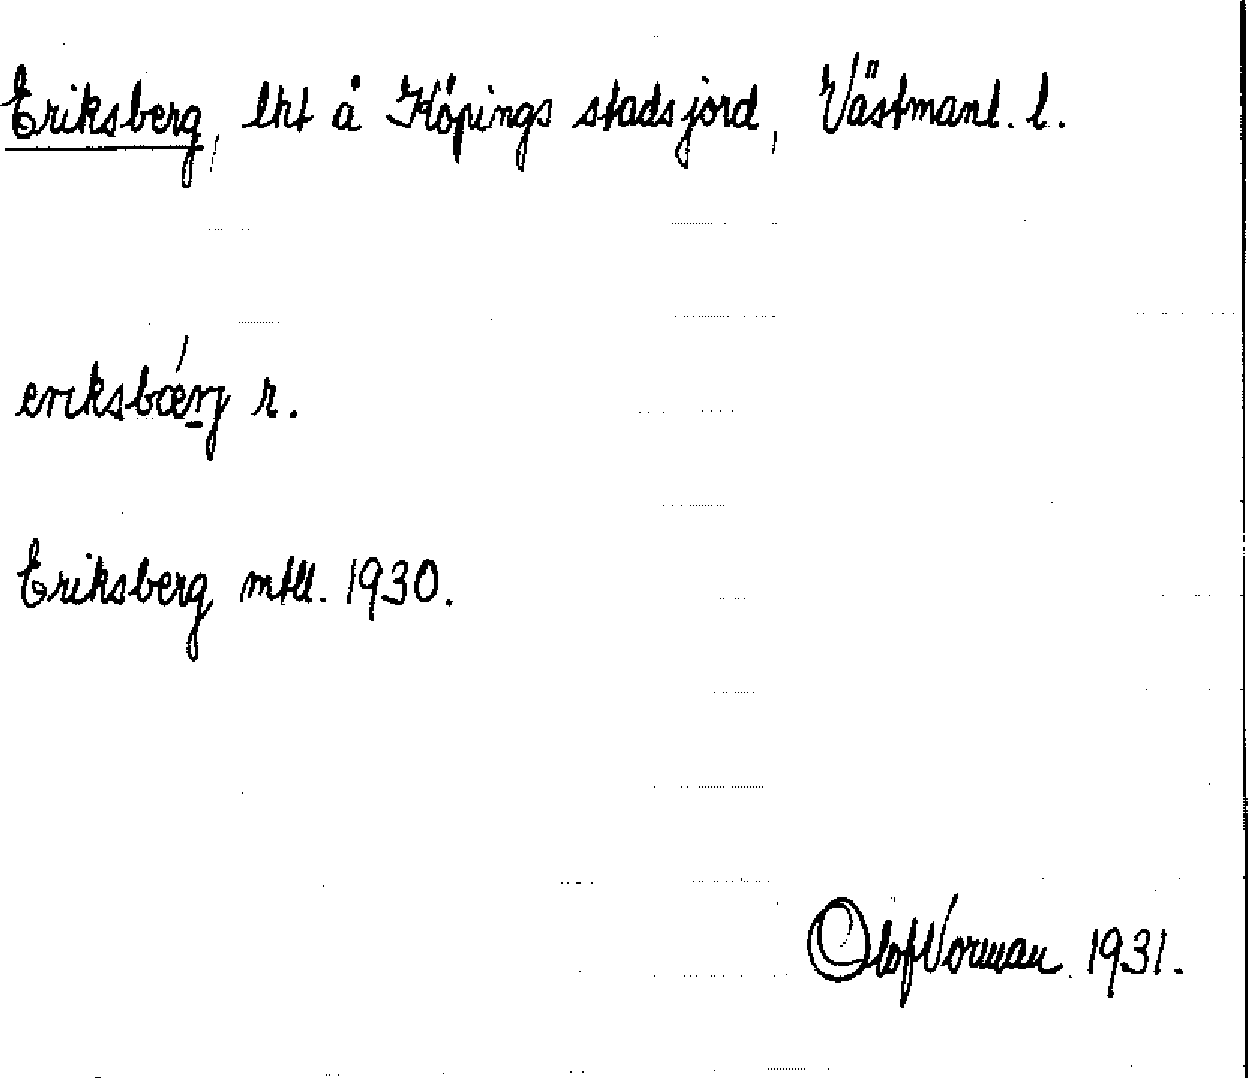 Eriksberg, lht å Köpings stadsjord, Västmanl. l.
eriksbœ́rj r.
Eriksberg mtll. 1930.
Olof Vorman. 1931.